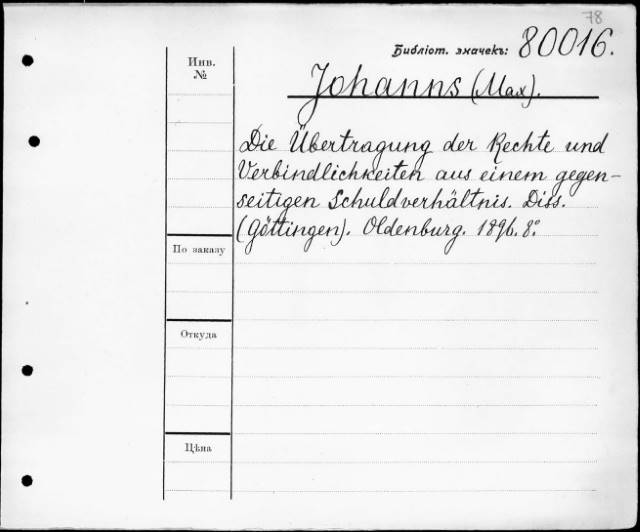 78
Библіот. значекъ: 80016.
Инв.
№
Johanns (Max).
Die Übertragung der Rechte und
Verbindlichkeiten aus einem gegen-
seitigen Schuldverhältnis. Diss.
(Göttingen). Oldenburg. 1896. 8º.
По заказу
Откуда
Цѣна